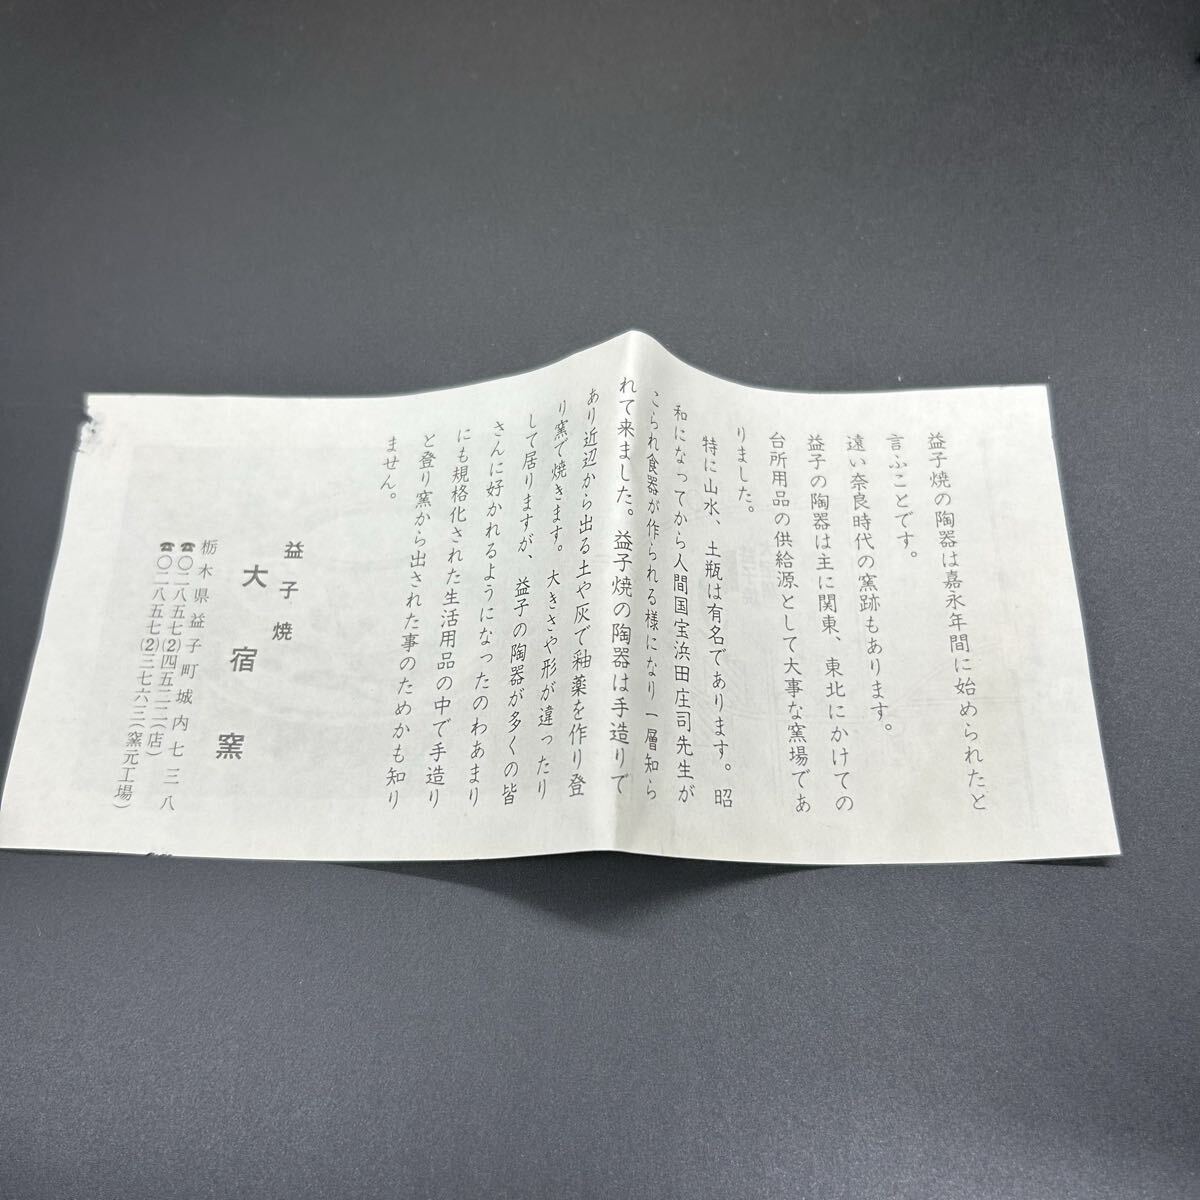 益子焼の陶器は嘉永年間に始められたと
言ふことです。
遠い奈良時代の窯跡もあります。
益子の陶器は主に関東、東北にかけての
台所用品の供給源として大事な窯場であ
りました。
特に山水、土瓶は有名であります。昭
和になってから人間国宝浜田庄司先生が
こられ食器が作られる様になり一層知ら
れて来ました。益子焼の陶器は手造りで
あり近辺から出る土や灰で釉薬を作り登
り窯で焼きます。大きさや形が違ったり
して居りますが、益子の陶器が多くの皆
さんに好かれるようになったのわあまり
にも規格化された生活用品の中で手造り
と登り窯から出された事のためかも知り
ません。
益子焼
大宿窯
栃木県益子町城内七三八
☎〇二八五七(2)四五二二(店)
☎〇二八五七(2)三七六三(窯元工場)